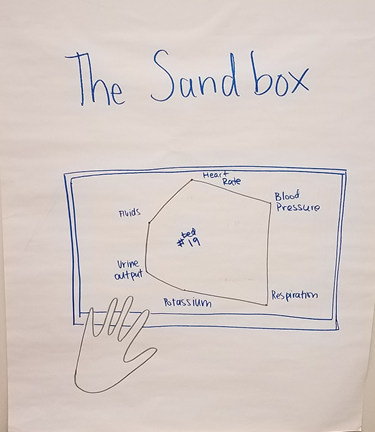 The Sandbox
Heart
Rate
Blood
Pressure
Fluids
bed
#19
Urine
output
Potassium
Respiration